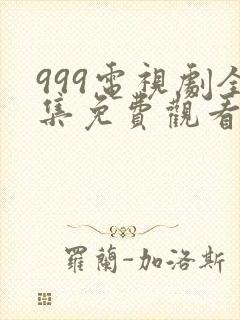 999電視劇全
集免費觀看
羅蘭-加洛斯